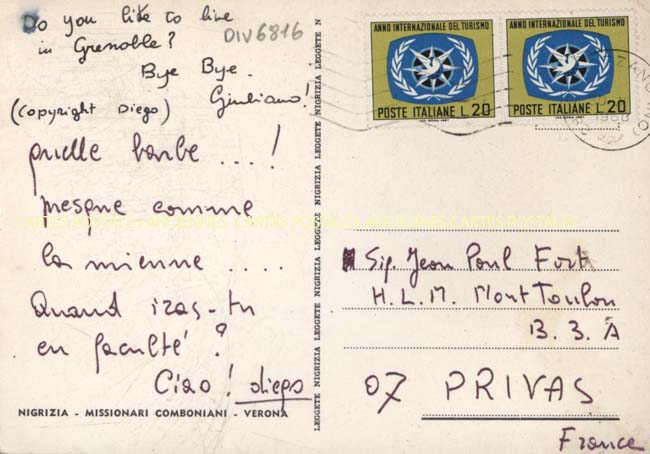 Do you like to live
in Grenoble?
Bye Bye.
Giuliano!
(Copyright Diego)
DIV6816
quelle barbe ....!
presque comme
la mienne ....
Quand iras-tu
en faculté?
Ciao! diego
NIGRIZIA - MISSIONARI COMBONIANI - VERONA
LEGGETE NIGRIZIA LEGGETE NIGRIZIA LEGGETE NIGRIZIA LEGGETE NIGRIZIA LEGGETE NIGRIZIA LEGGETE N
ANNO INTERNAZIONALE DEL TURISMO
POSTE ITALIANE L.20
ANNO INTERNAZIONALE DEL TURISMO
POSTE ITALIANE L.20
1968
Sig. Jean Paul Fort
H.L.M. Mont Toulon
B. 3. A
07 PRIVAS
France